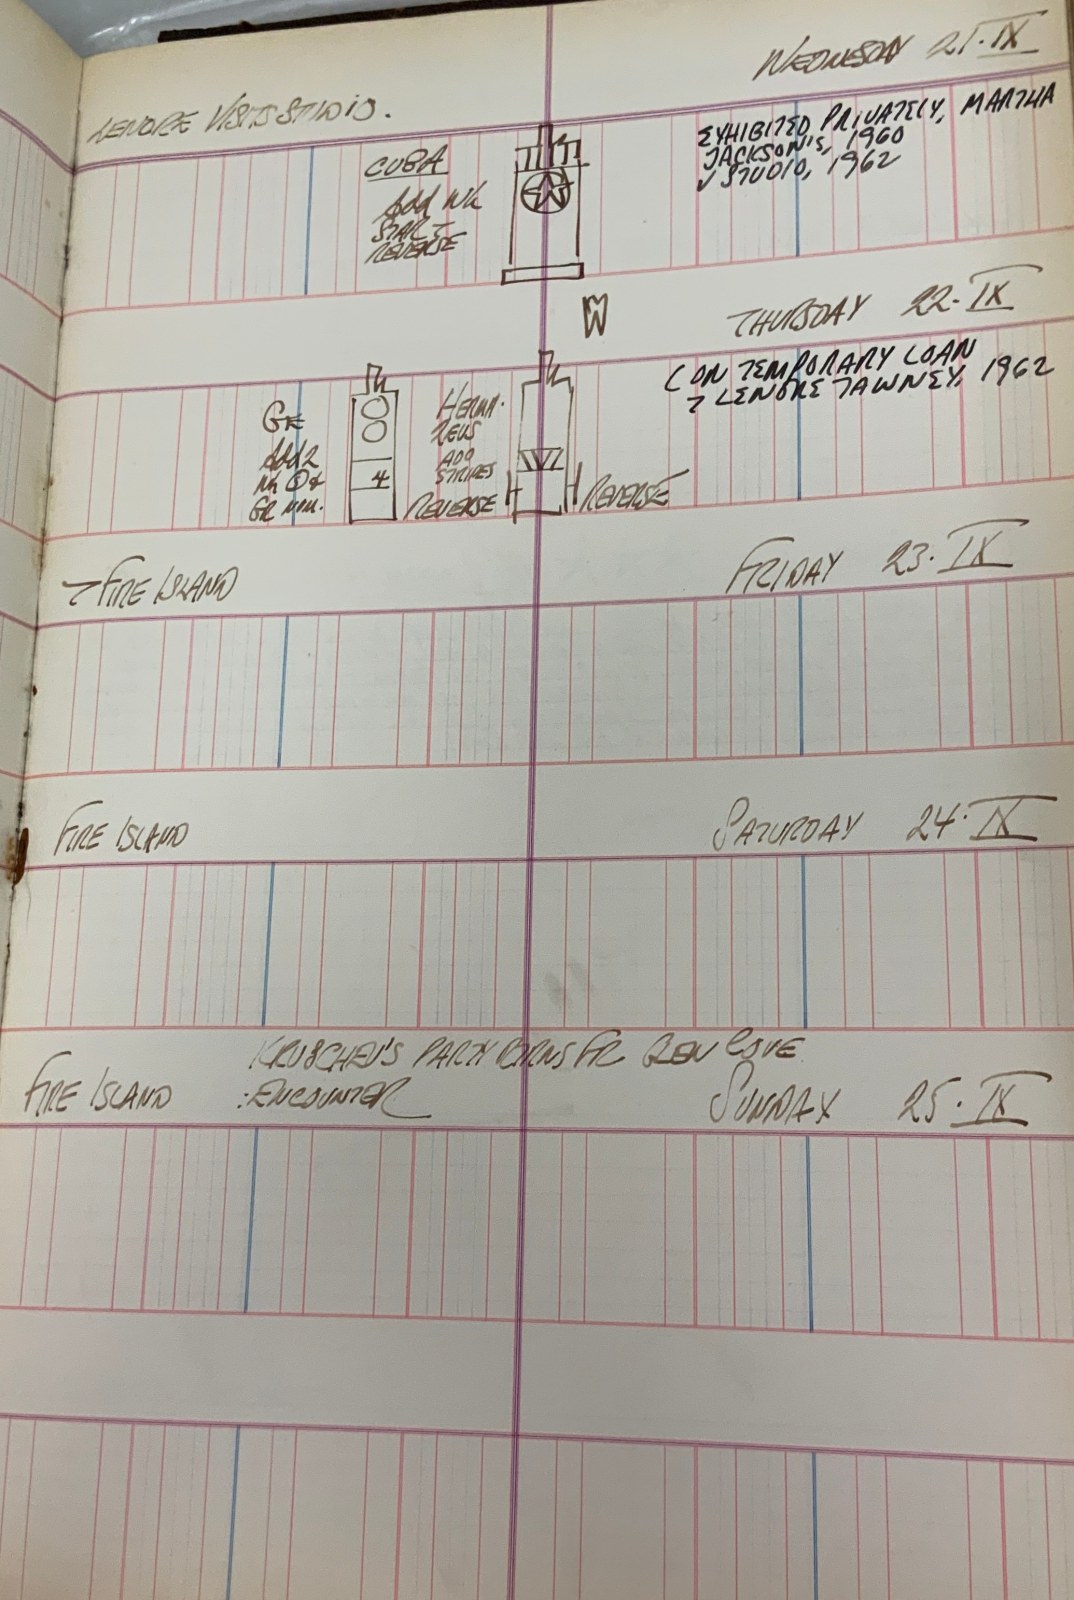 WEDNESDAY 21·IX
LENORE VISITS STUDIO.
EXHIBITED PRIVATELY, MARTHA
JACKSON'S, 1960
✓ STUDIO, 1962
CUBA
Add Wh
STAR I
REVERSE
W
THURSDAY 22·IX
CONTEMPORARY LOAN
LENORE TAWNEY, 1962
GE
Add 2
Wh
GR
4
HERM.
ZEUS
ADD
STRIPES
REVERSE
REVERSE
→ FIRE ISLAND
FRIDAY 23·IX
FIRE ISLAND
SATURDAY 24·IX
KRUSCHEV'S PARTY FR GLEN COVE
FIRE ISLAND :ENCOUNTER
SUNDAY 25·IX